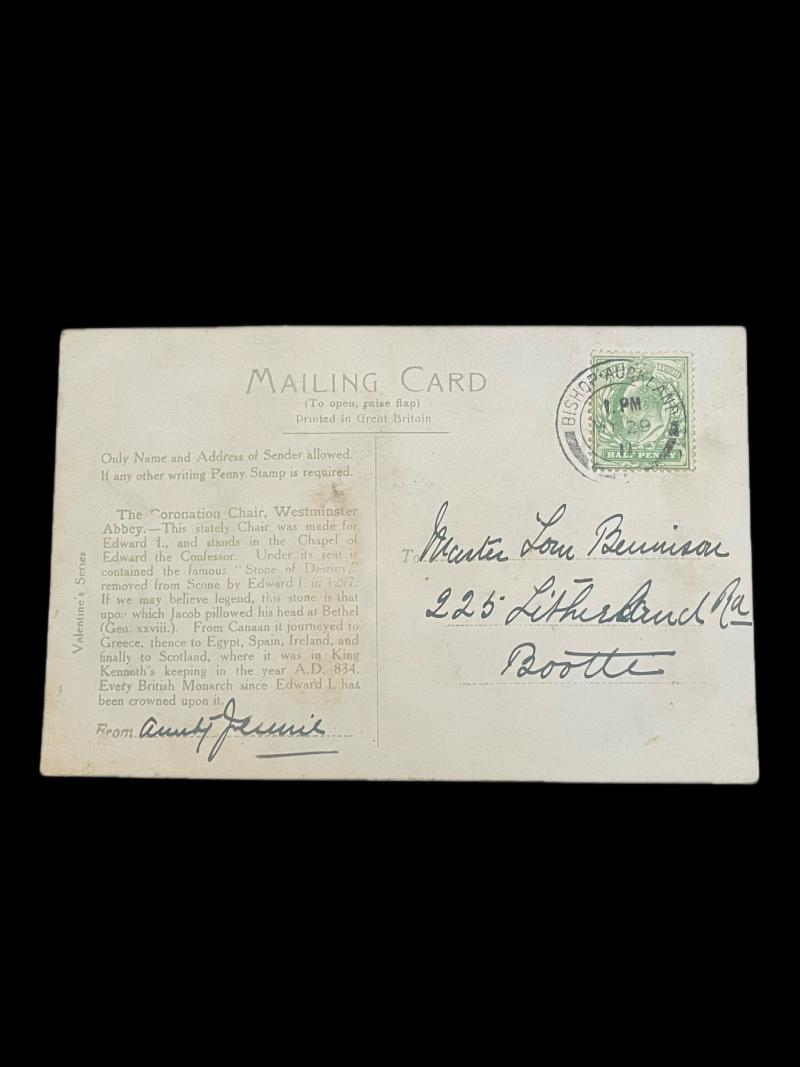 MAILING CARD
(To open, raise flap)
Printed in Great Britain
Only Name and Address of Sender allowed.
If any other writing Penny Stamp is required.
The Coronation Chair, Westminster
Abbey.—This stately Chair was made for
Edward I., and stands in the Chapel of
Edward the Confessor. Under its seat is
contained the famous "Stone of Destiny,"
removed from Scone by Edward I. in 1297.
If we may believe legend, this stone is that
upon which Jacob pillowed his head at Bethel
(Gen. xxviii.). From Canaan it journeyed to
Greece, thence to Egypt, Spain, Ireland, and
finally to Scotland, where it was in King
Kenneth's keeping in the year A.D. 834.
Every British Monarch since Edward I. has
been crowned upon it.
From Aunty Jennie
Valentine's Series
BISHOP·AUCKLAND
1 PM
MY 29
11
HALF PENNY
To Master Tom Bennison
225 Litherland Rd
Bootle